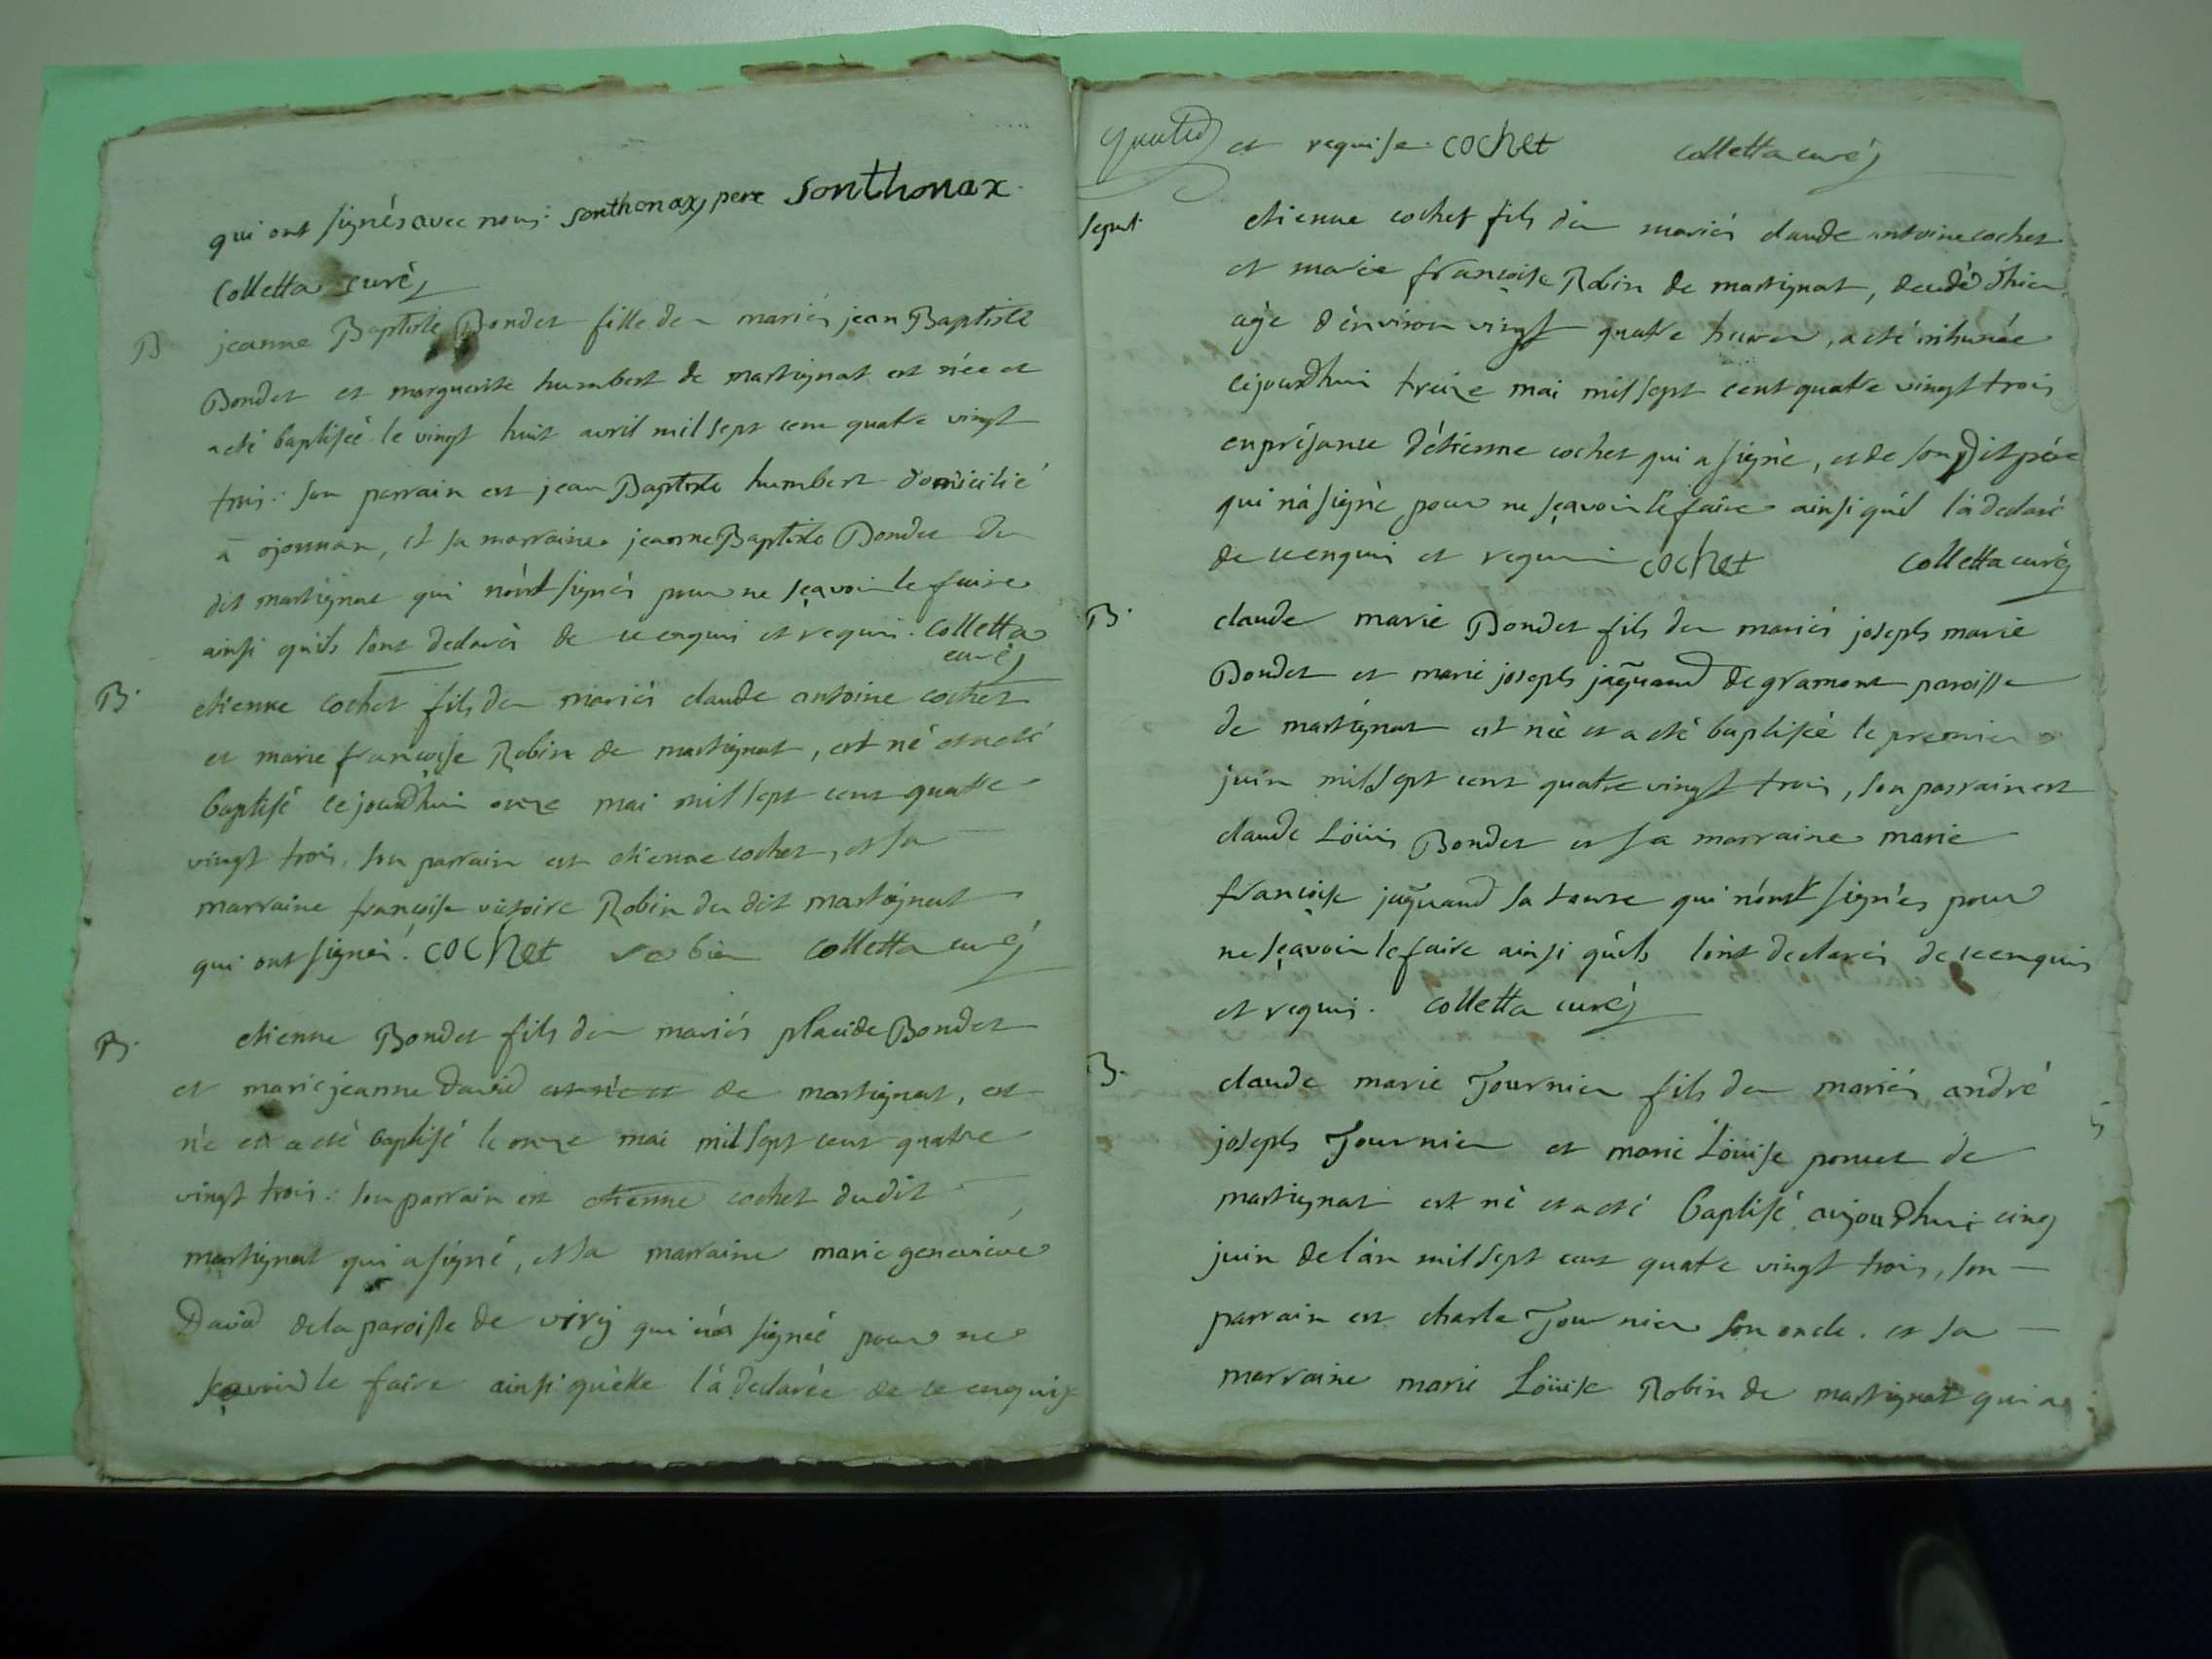 qui ont signés avec nous: Sonthonax pere Sonthonax
Colletta curé
B jeanne Baptiste Bondet fille des mariés jean Baptiste
Bondet et marguerite humbert de martignat est née et
a eté baptisée le vingt huit avril mil sept cent quatre vingt
trois: son parrain est jean Baptiste humbert domicilié
a ojonnax, et sa marraine jeanne Baptiste Bondet du
dit martignat qui n'ont signés pour ne sçavoir le faire
ainsi qu'ils l'ont declarés de ce enquis et requis. Colletta
curé
B. etienne cochet fils des mariés claude antoine cochet
et marie françoise Robin de martignat, est né et a eté
baptisé cejourd'hui onze mai mil sept cent quatre
vingt trois, son parrain est etienne cochet, et sa
marraine françoise victoire Robin du dit martignat
qui ont signés. cochet robin Colletta curé
B. etienne Bondet fils des mariés placide Bondet
et marie jeanne David est né et de martignat, est
né et a eté baptisé le onze mai mil sept cent quatre
vingt trois: son parrain est etienne cochet dudit
martignat qui a signé, et sa marraine marie genevieve
David de la paroisse de viry qui n'a signée pour ne
sçavoir le faire ainsi qu'elle l'a declarée de ce enquise
et requise. cochet Colletta curé
sepult. etienne cochet fils des mariés claude antoine cochet
et marie françoise Robin de martignat, decedé d'hier
agé d'environ vingt quatre heures, a eté inhumée
cejourd'hui treize mai mil sept cent quatre vingt trois
en présance d'étienne cochet qui a signé, et de son dit pére
qui n'a signé pour ne sçavoir le faire ainsi qu'il l'a declaré
de ce enquis et requis cochet Colletta curé
B. claude marie Bondet fils des mariés joseph marie
Bondet et marie joseph jaquand de gramont paroisse
de martignat est née et a eté baptisée le premier
juin mil sept cent quatre vingt trois, son parrain est
claude Loüis Bondet et sa marraine marie
françoise jaquand sa tante qui n'ont signés pour
ne sçavoir le faire ainsi qu'ils l'ont declarés de ce enquis
et requis. Colletta curé
B. claude marie Tournier fils des mariés andré
joseph Tournier et marie Loüise poncet de
martignat est né et a eté baptisé aujourd'hui cinq
juin de l'an mil sept cent quatre vingt trois, son
parrain est charle Tournier son oncle. et sa
marraine marie Loüise Robin de martignat qui a